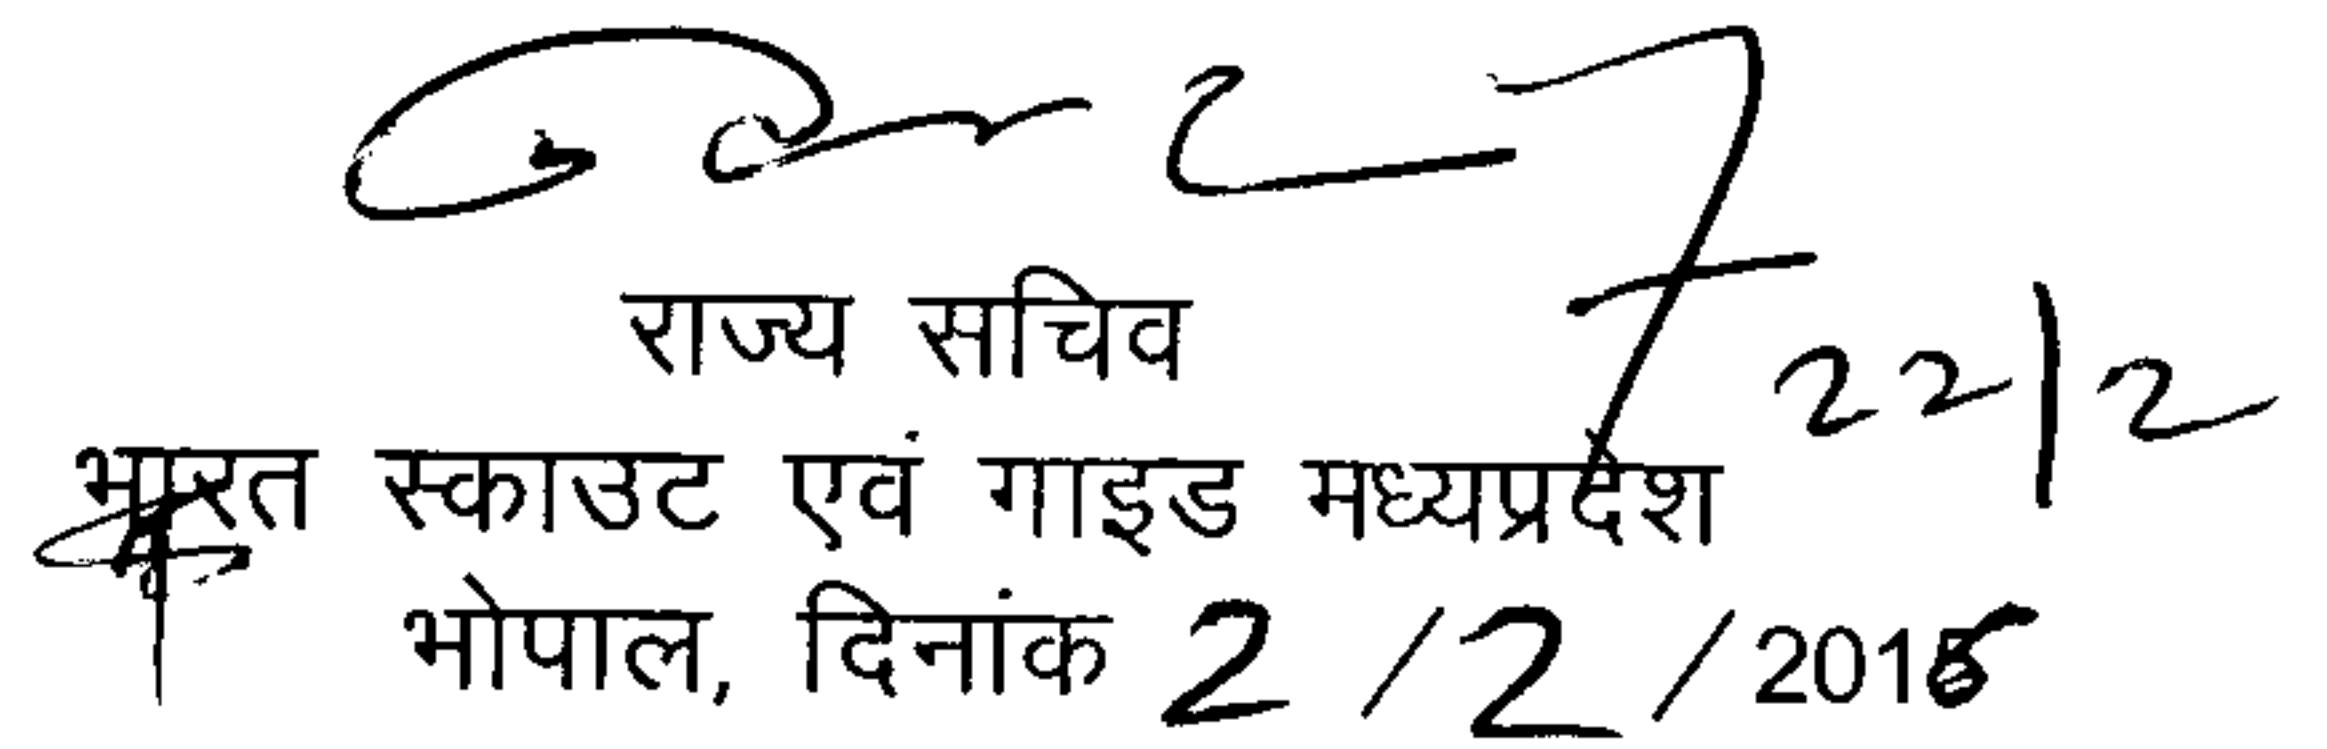 राज्य सचिव
22/2
भारत स्काउट एवं गाइड मध्यप्रदेश
भोपाल, दिनांक 2/2/2016